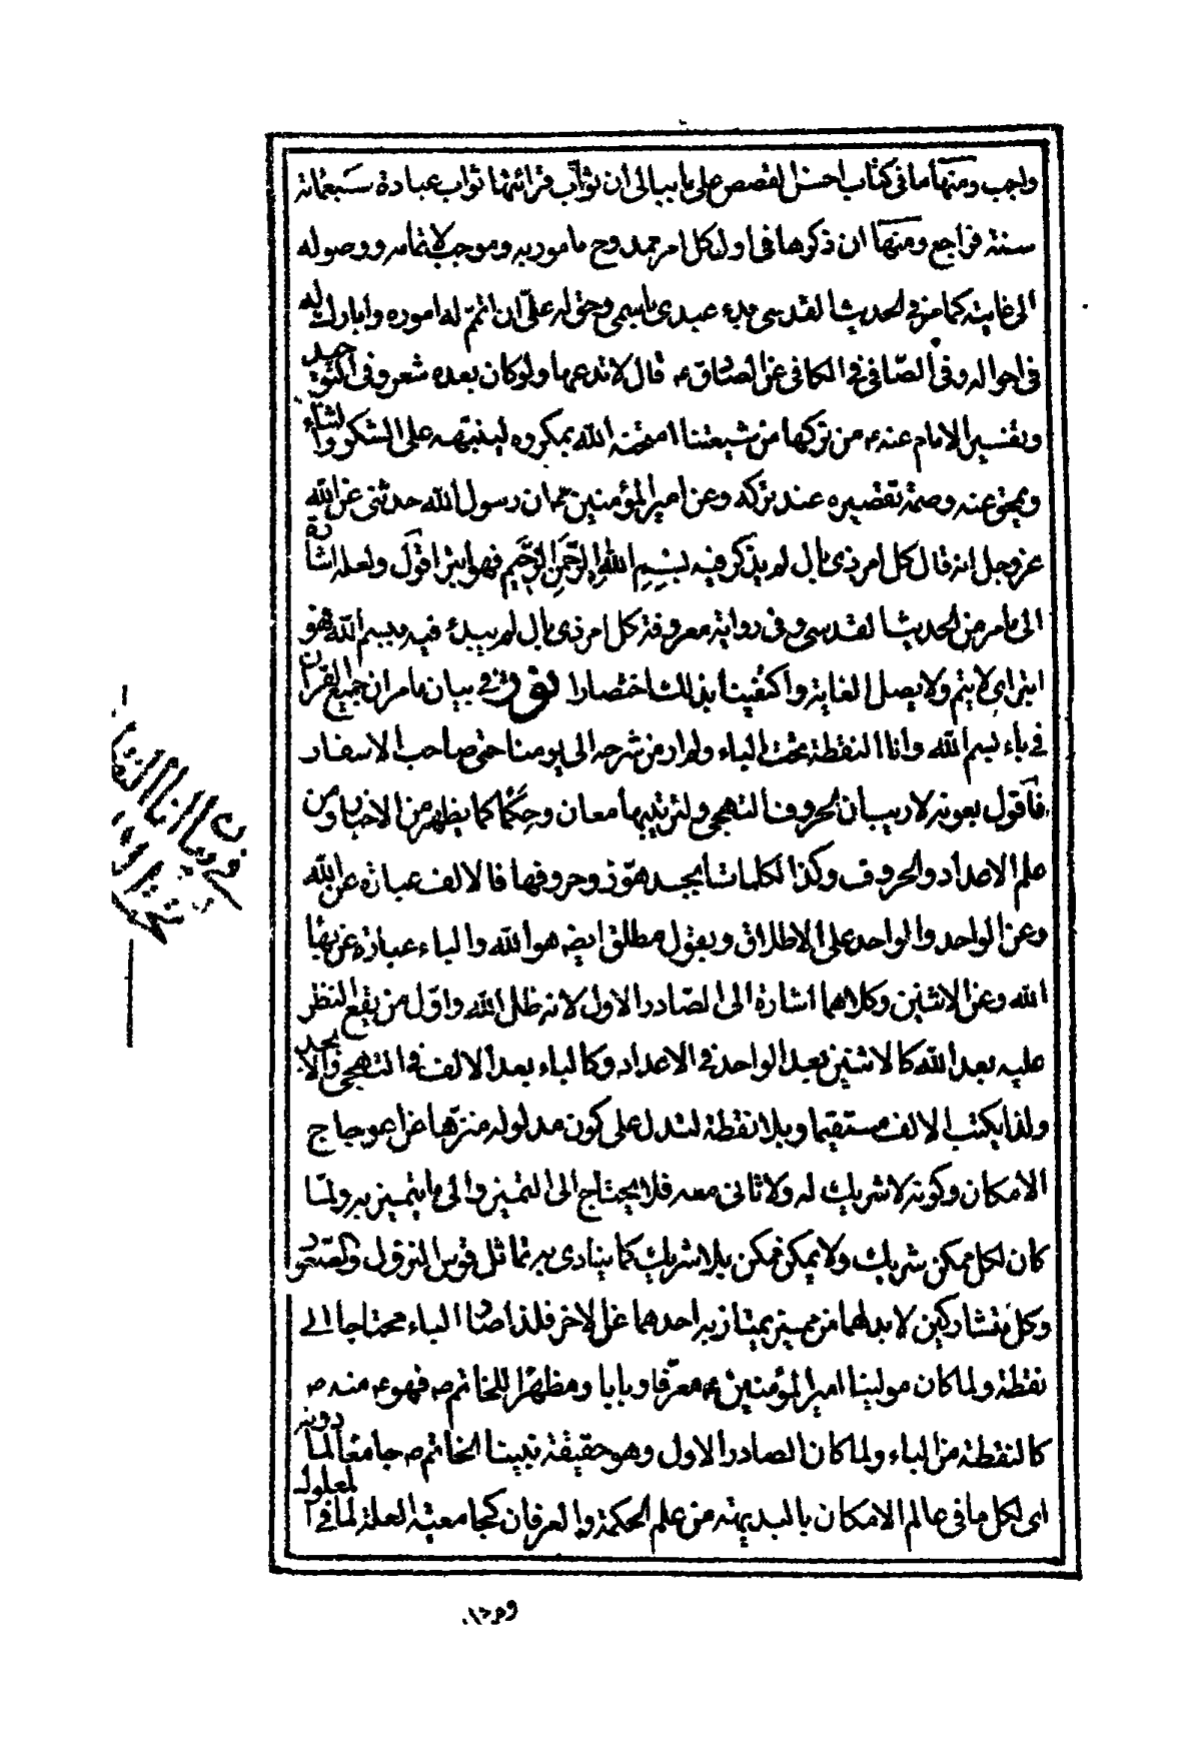 واجب ومنها ما فى كتاب احسن القصص على ما ببالى ان ثواب قرائتها ثواب عبادة سبعمائة
سنة فراجع ومنها ان ذكرها فى اول كل امر ممدوح مامور به وموجب لاتمامه ووصوله
الى غايته كما مر فى الحديث القدسى بدء عبدى باسمى وحق له علىّ ان اتمّم له اموره وابارك له
فى احواله وفى الصّافى فى الكافى عن الصّادق ع قال لا تدعها ولو كان بعده شعر وفى التوحيد
وتفسير الامام عنه ع من تركها من شيعتنا امتحنه الله بمكروه لينبّهه على الشكر والثناء
ويمحق عنه وصمة تقصيره عند تركه وعن امير المؤمنين ع ان رسول الله حدثنى عن الله
عز وجل انه قال كل امر ذى بال لم يذكر فيه بسم الله الرحمن الرحيم فهو ابتر اقول ولعله اشارة
الى ما مر من الحديث القدسى وفى رواية معروفة كل امر ذى بال لم يبدء فيه ببسم الله فهو
ابتر اى لا يتم ولا يصل الغاية واكتفينا بذلك اختصارا فى بيان ما مر ان جميع القران
فى باء بسم الله وانا النقطة تحت الباء ولم ار من شرحه الى يومنا حتى صاحب الاسفار
فاقول بعونه لا ريب ان لحروف التهجى ولترتيبها معان وحكما كما يظهر من الاخبار ومن
علم الاعداد والحروف وكذا لكلمات ابجد هوّز وحروفها فالالف عبارة عن الله
وعن الواحد والواحد على الاطلاق وبقول مطلق ايضه هو الله والباء عبارة عن بهاء
الله وعن الاثنين وكلاهما اشارة الى الصّادر الاول لانه ظل الله واوّل من يقع النظر
عليه بعد الله كالاثنين بعد الواحد فى الاعداد وكالباء بعد الالف فى التهجى والابجد
ولذا يكتب الالف مستقيما وبلا نقطة لتدل على كون مدلوله منزّها عن اعوجاج
الامكان وكونه لا شريك له ولا ثانى معه فلا يحتاج الى التميز والى ما يتميز به ولمّا
كان لكل ممكن شريك ولا يمكن ممكن بلا شريك كما ينادى به تماثل قوس النزول والصعود
وكل متشاركين لا بد لهما من مميز يمتاز به احدهما عن الاخر فلذا صار الباء محتاجا الى
نقطة ولما كان مولينا امير المؤمنين ع معرّفا وبابا ومظهرا للخاتم ص فهو ع منه ص
كالنقطة من الباء ولما كان الصادر الاول وهو حقيقة نبينا الخاتم ص جامعا لما دونه
اى لكل ما فى عالم الامكان بالبديهة من علم الحكمة والعرفان كجامعية العلة لما فى المعلول